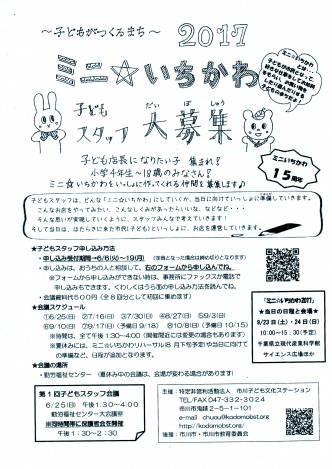 ～子どもがつくるまち～ 2017
ミニ☆いちかわ
子どもスタッフ 大募集
だい ぼ しゅう
ミニいちかわ
15周年
子ども市長になりたい子 集まれ!
小学4年生～18歳のみなさん!
ミニ☆いちかわをいっしょに作ってくれる仲間を募集します♪
子どもスタッフは、どんな「ミニ☆いちかわ」にしていくか、当日に向けていっしょに準備していきます。
こんなお店をやってみたい、こんなしくみがあったらいいな、などなど・・・
そんな思いが実現していくように、スタッフみんなで考えていきます!
そして当日は、はたらきに来た市民(子ども)といっしょに、お店を運営していきます。
★子どもスタッフ申し込み方法
・申し込み受付期間→6/6(火)～19(月)
・申し込みは、おうちの人に相談して、右のフォームから申し込んでね。
※フォームから申し込みができない時は、事務所にファックスか電話で
申し込みもできます。くわしくはうら面の申し込み方法を読んでね。
・会議資料代500円(全8回分として初回に集めます)
★会議スケジュール
①6/25(日) ②7/16(日) ③7/30(日) ④8/6(日) ⑤9/3(日)
★会議の場所
・勤労福祉センター (夏休み中の会議は、会場が変わる場合があります)
「ミニ☆いちかわ2017」
★当日の日程と会場★
9/23(土)・24(日)
10:00～15:30(予定)
千葉県立現代産業科学館
サイエンス広場ほか
第1回子どもスタッフ会議
6/25(日) 午後1:30～4:00
勤労福祉センター大会議室
※同時間帯に保護者会を開催
午後1:30～2:30
主催:特定非営利活動法人 市川子ども文化ステーション
TEL/FAX 047-332-3024
市川市鬼越2-5-1-101
後援:市川市・市川市教育委員会